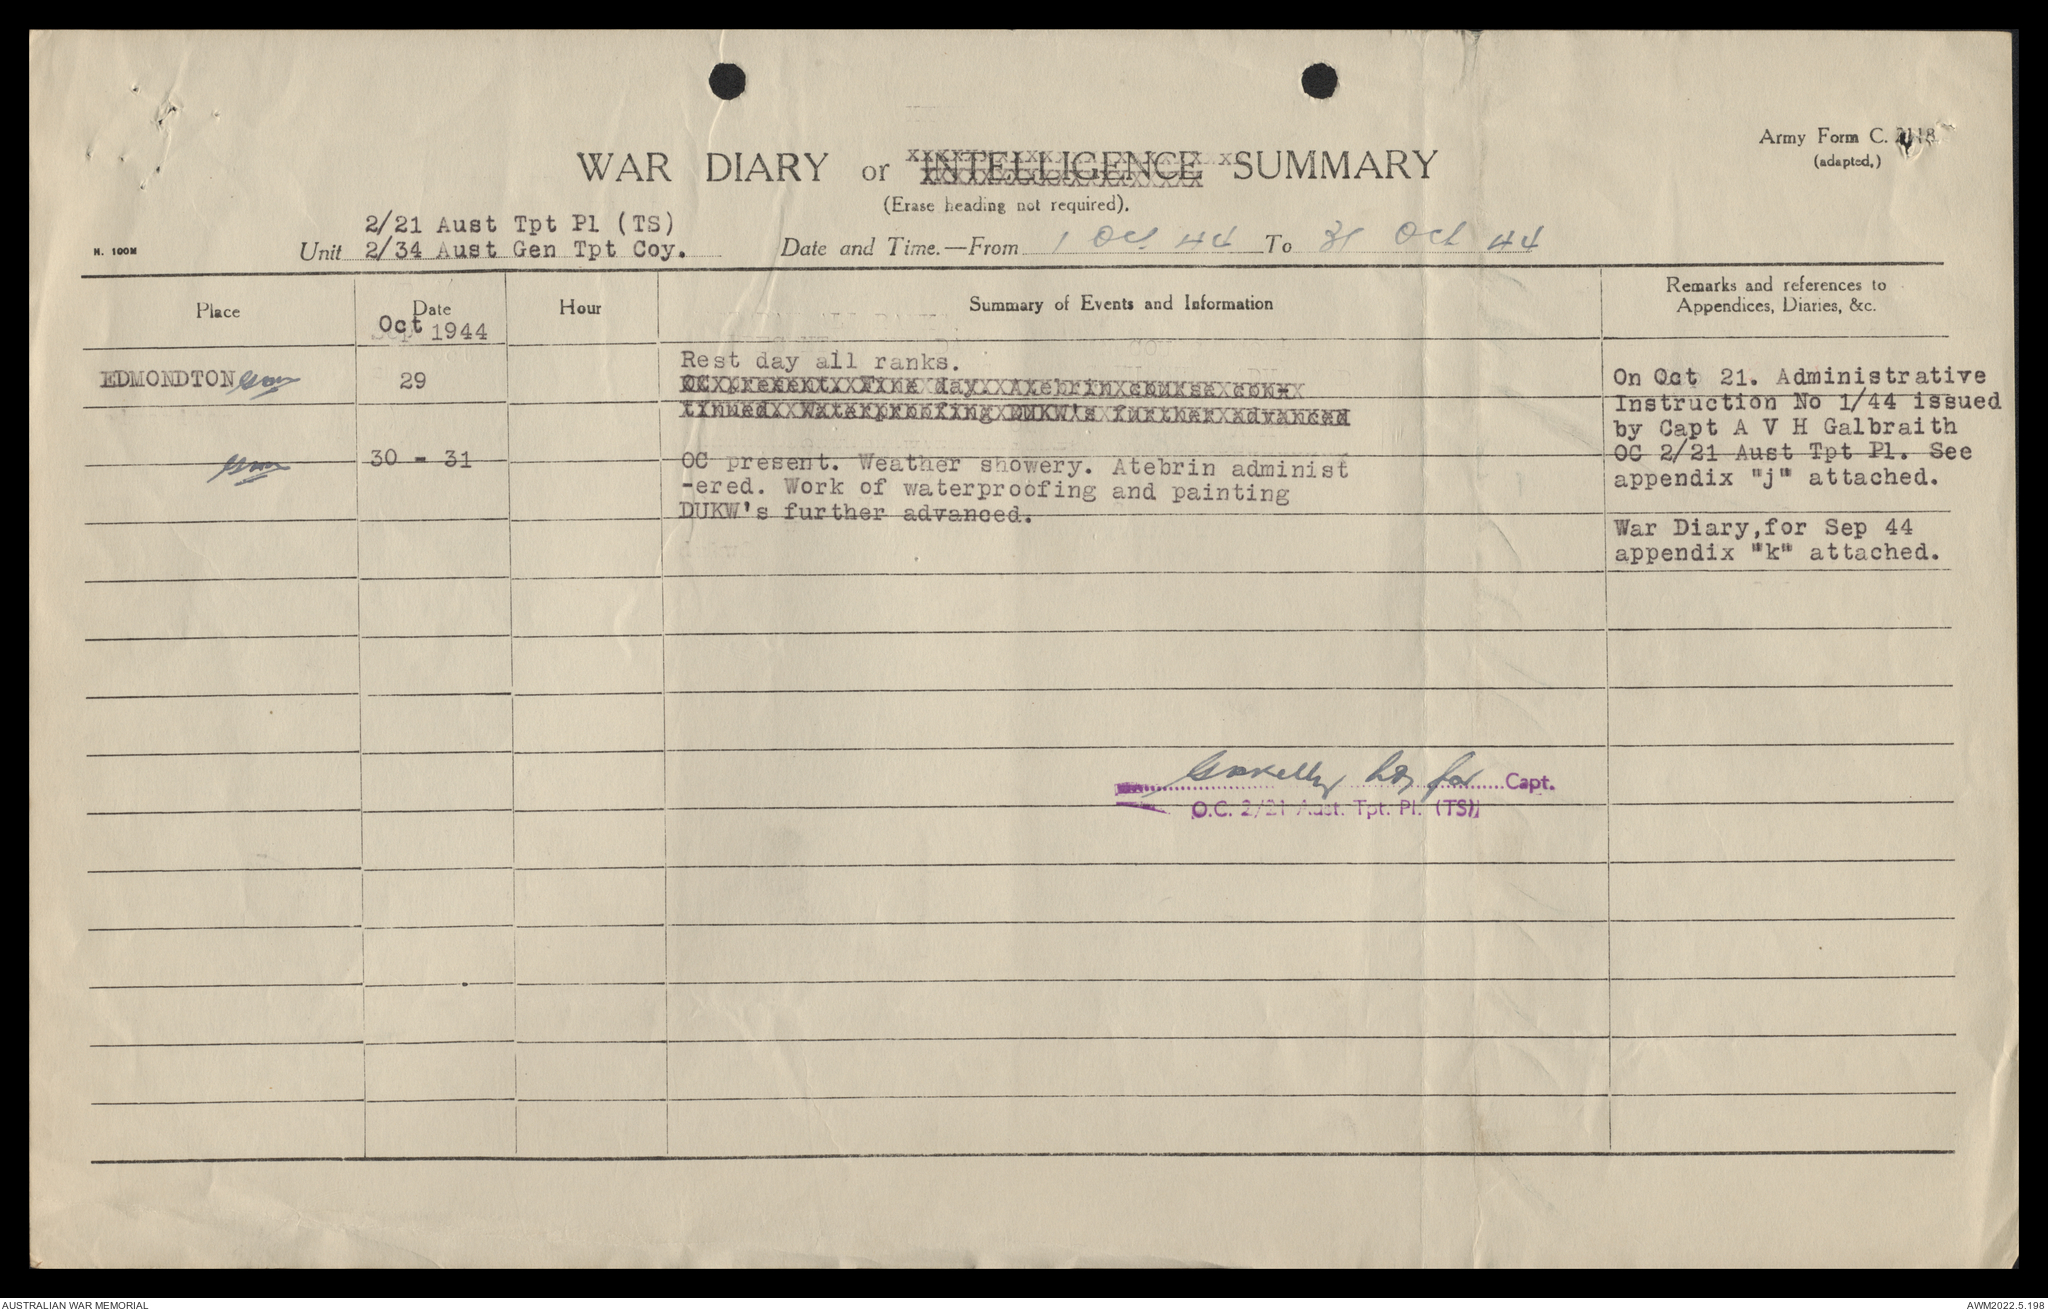 Army Form C. 2118
(adapted.)
WAR DIARY or INTELLIGENCE SUMMARY
(Erase heading not required).
2/21 Aust Tpt Pl (TS)
N. 100M
Unit 2/34 Aust Gen Tpt Coy.
Date and Time.—From 1 Oct 44 To 31 Oct 44
Place
Date
Hour
Summary of Events and Information
Remarks and references to
Appendices, Diaries, &c.
Oct 1944
EDMONDTON
29
Rest day all ranks.
OC present. Fine day. Atebrin course con-
tinued. Waterproofing DUKW's further advanced
30 - 31
OC present. Weather showery. Atebrin administ
-ered. Work of waterproofing and painting
DUKW's further advanced.
On Oct 21. Administrative
Instruction No 1/44 issued
by Capt A V H Galbraith
OC 2/21 Aust Tpt Pl. See
appendix "j" attached.
War Diary,for Sep 44
appendix "k" attached.
for Capt.
O.C. 2/21 Aust. Tpt. Pl. (TS)
AUSTRALIAN WAR MEMORIAL
AWM2022.5.198